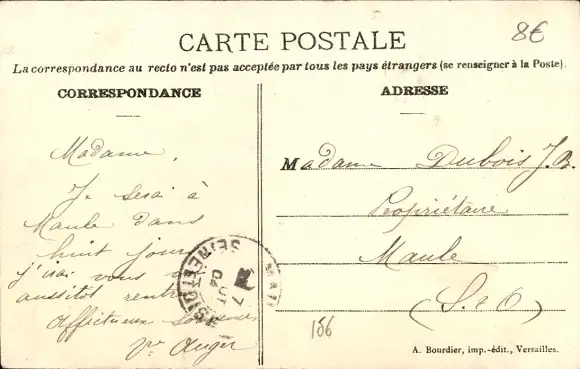 8€
CARTE POSTALE
La correspondance au recto n'est pas acceptée par tous les pays étrangers (se renseigner à la Poste).
CORRESPONDANCE
Madame,
Je serai à
Maule dans
huit jours
j'irai vous
aussitôt rentr
Affectueux
Auger
ADRESSE
Madame Dubois J.B.
Propriétaire
Maule
(S. et O)
SEINE-ET
17
04
186
A. Bourdier, imp.-édit., Versailles.